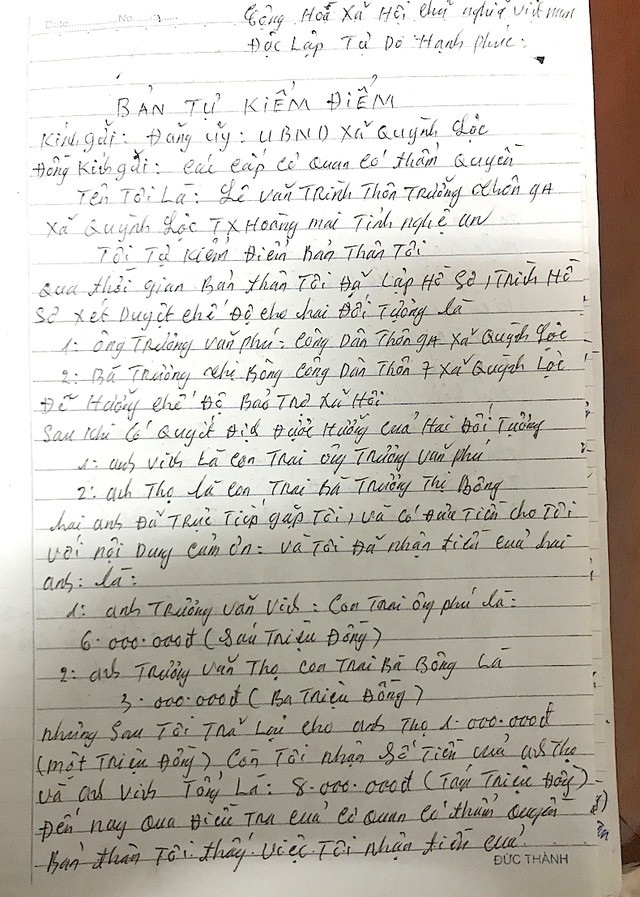 Date No
Cộng Hoà Xã Hội chủ nghĩa Việt nam
Độc Lập Tự Do Hạnh phúc:
BẢN TỰ KIỂM ĐIỂM
Kính gửi: Đảng ủy: UBND Xã Quỳnh Lộc
Đồng Kính gửi: các cấp cơ quan có thẩm quyền
Tên Tôi Là: Lê văn Trình Thôn Trưởng thôn 9A
Xã Quỳnh Lộc TX Hoàng mai Tỉnh nghệ an
Tôi Tự Kiểm Điểm Bản Thân Tôi
Qua thời gian Bản thân Tôi Đã Lập Hồ Sơ, Trình Hồ
Sơ Xét Duyệt chế Độ cho hai Đối Tượng là
1: ông Trương văn phú: công Dân Thôn 9A Xã Quỳnh Lộc
2: Bà Trương thị Bông công Dân Thôn 7 Xã Quỳnh Lộc
Để Hưởng chế Độ Bảo Trợ Xã Hội
Sau khi có Quyết Địh Được Hưởng của Hai Đối Tượng
1: anh vich Là con Trai ông Trương văn phú
2: anh Thọ là con Trai Bà Trương Thị Bông
hai anh Đã Trực Tiếp gặp Tôi, và có Đưa Tiền cho Tôi
với nội Dung cảm ơn: và Tôi Đã nhận tiền của hai
anh: là:
1: anh Trương văn vich: con Trai ông phú là:
6.000.000đ (Sáu Triệu Đồng)
2: anh Trương văn Thọ con Trai Bà Bông Là
3.000.000đ (Ba Triệu Đồng)
nhưng Sau Tôi Trả Lại cho anh Thọ 1.000.000đ
(một Triệu Đồng) Còn Tôi nhận Số Tiền của anh Thọ
và anh vich Tổng Là: 8.000.000đ (Tám Triệu Đồng)
Đến nay Qua Điều Tra của cơ Quan có thẩm Quyền
Bản thân Tôi thấy việc Tôi nhận tiền của
ĐỨC THÀNH